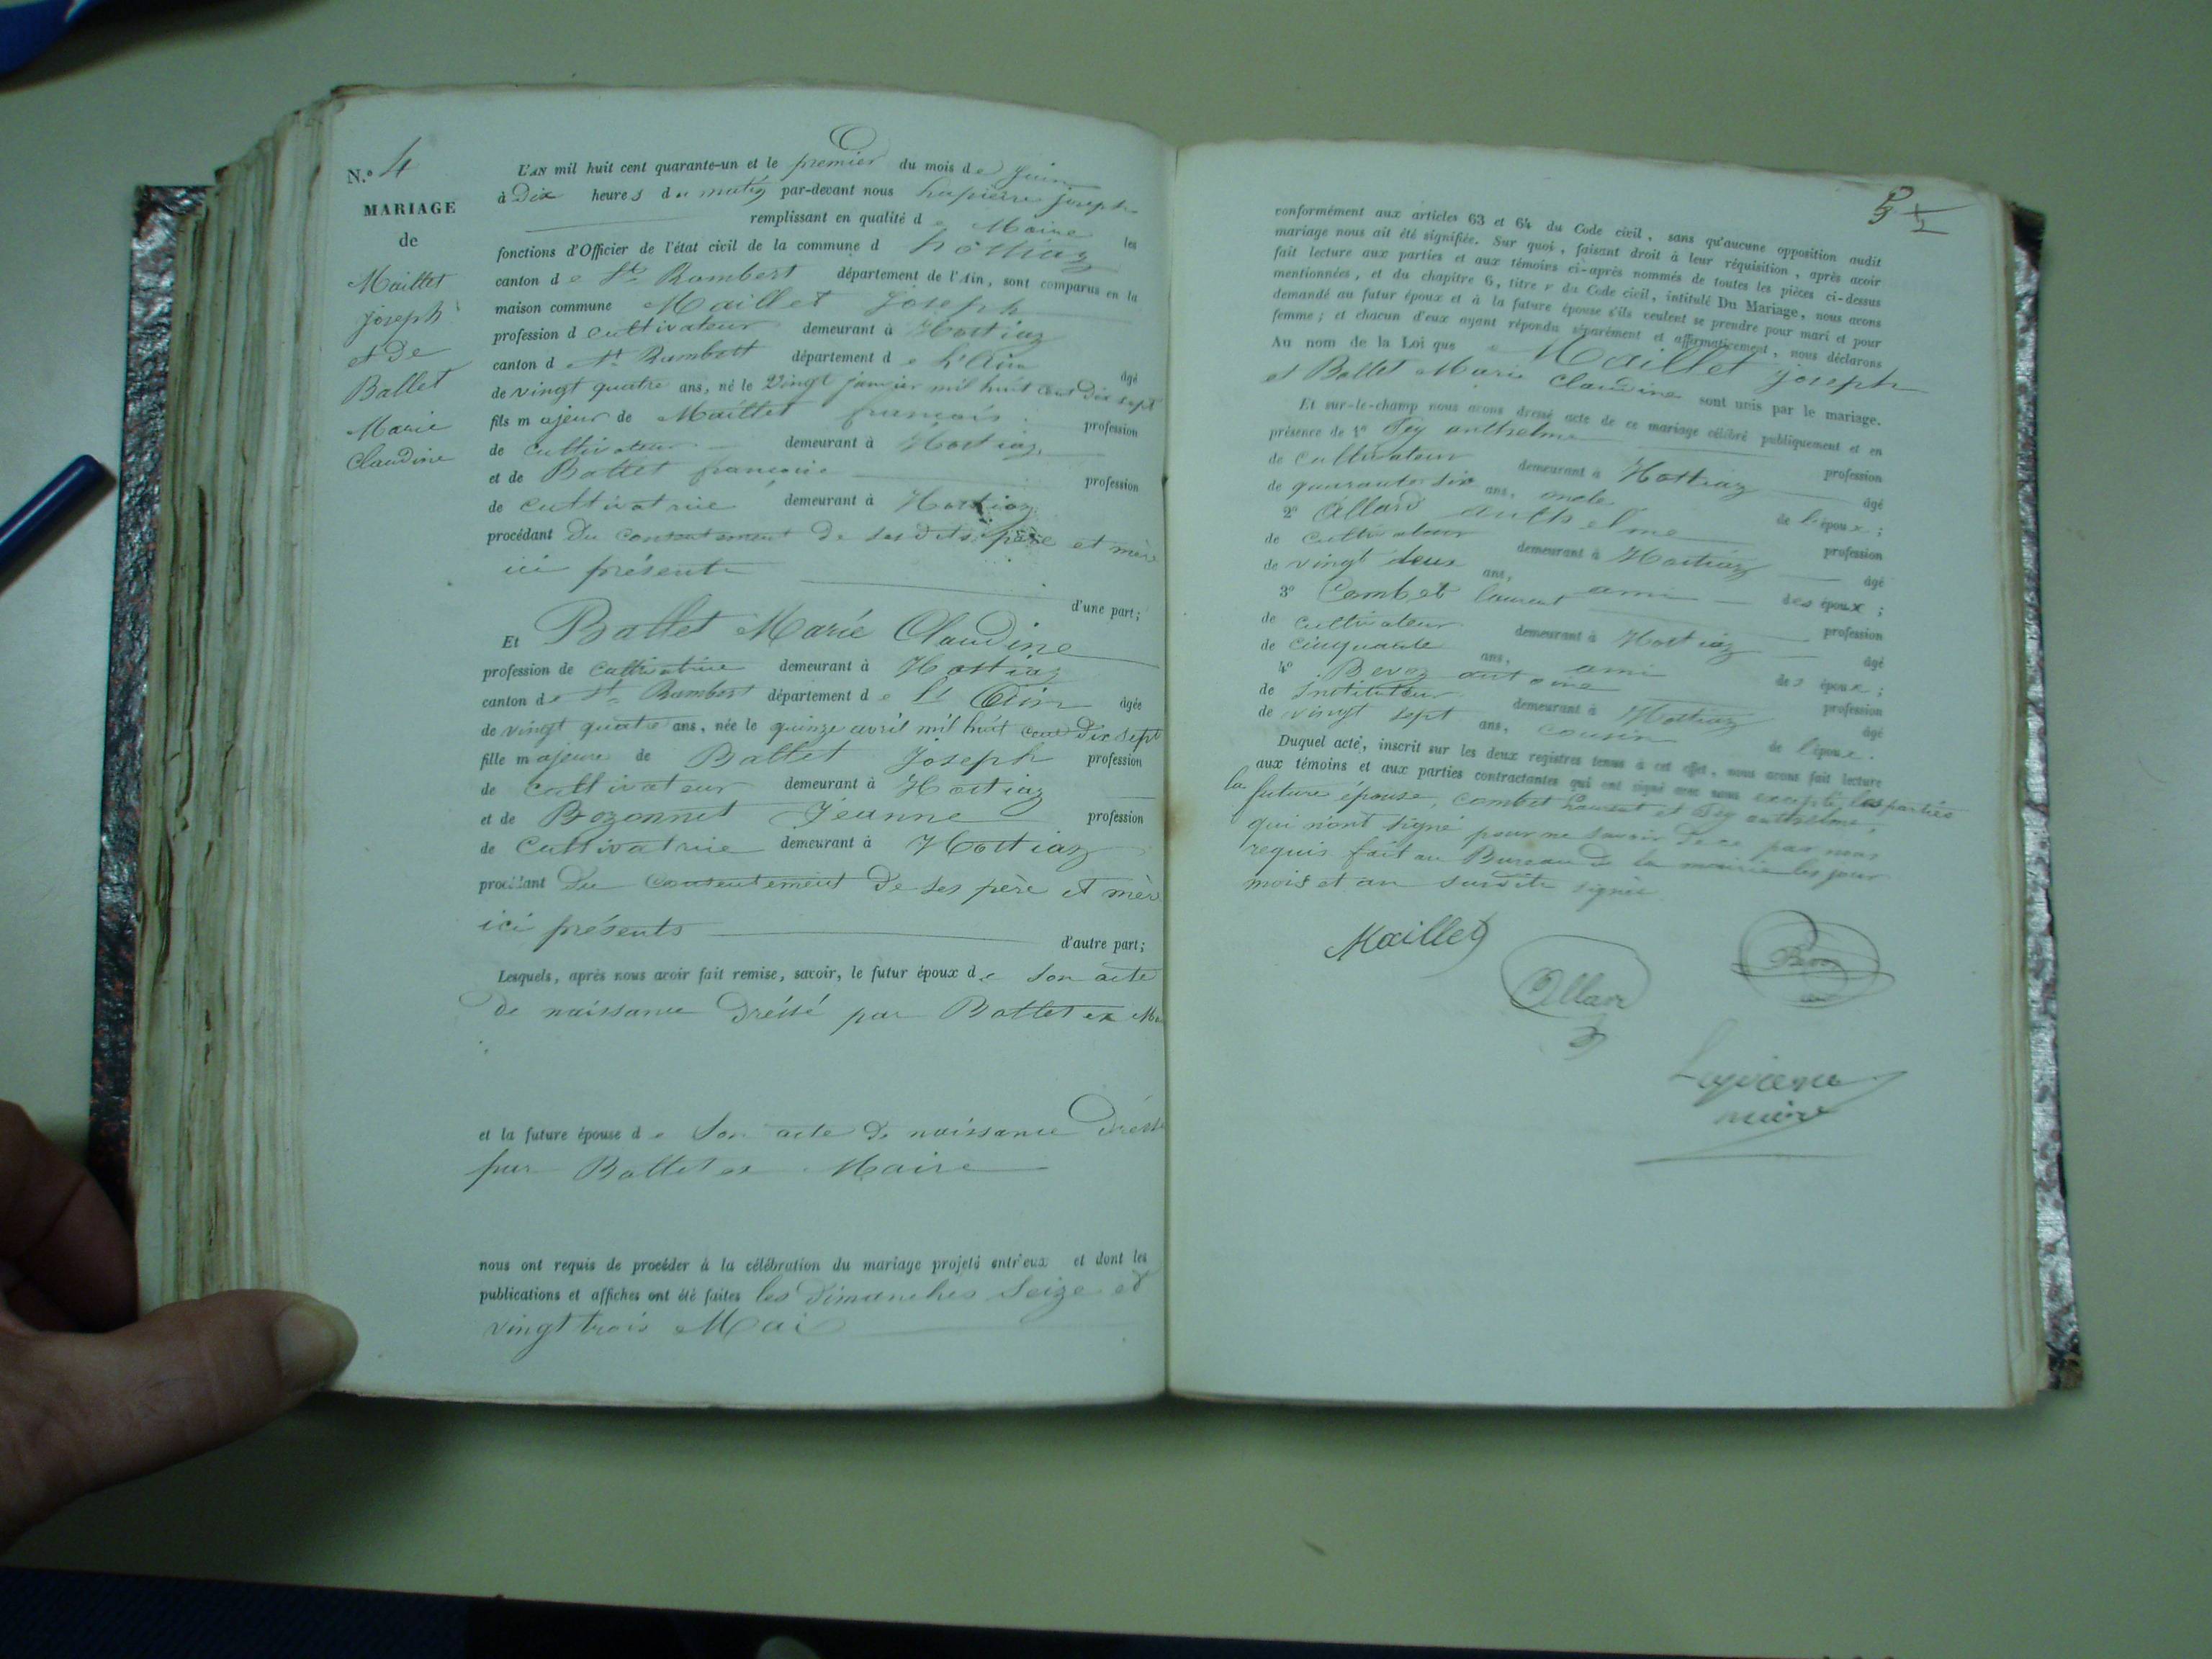 N.º 4
MARIAGE
de
Maillet
joseph
et De
Ballet
Marie
Claudine
L'AN mil huit cent quarante-un et le premier du mois de juin
à Dix heures du matin par-devant nous Lapierre joseph
remplissant en qualité de Maire les
fonctions d'Officier de l'état civil de la commune d hostiaz
canton de St Rambert département de l'Ain, sont comparus en la
maison commune Maillet Joseph
profession d cultivateur demeurant à Hostiaz
canton de St Rambert département de L'Ain âgé
de vingt quatre ans, né le vingt janvier mil huit cent Dix sept
fils majeur de Maillet françois profession
de cultivateur demeurant à Hostiaz
et de Ballet françoise profession
de cultivatrice demeurant à Hostiaz
procédant Du consentement De ses Dits père et mère
ici présents
d'une part;
Et Ballet Marie Claudine
profession de cultivatrice demeurant à Hostiaz
canton de St Rambert département de L'Ain âgée
de vingt quatre ans, née le quinze avril mil huit cent Dix sept
fille majeure de Ballet Joseph profession
de cultivateur demeurant à Hostiaz
et de Bozonnet Jeanne profession
de Cultivatrice demeurant à Hostiaz
procédant Du consentement De ses père et mère
ici présents
d'autre part;
Lesquels, après nous avoir fait remise, savoir, le futur époux de son acte
De naissance Dréssé par Ballet ex
et la future épouse de Son acte De naissance Dréssé
par Ballet ex Maire
nous ont requis de procéder à la célébration du mariage projeté entr'eux et dont les
publications et affiches ont été faites les Dimanches Seize et
vingt trois Mai
conformément aux articles 63 et 64 du Code civil, sans qu'aucune opposition audit
mariage nous ait été signifiée. Sur quoi, faisant droit à leur réquisition, après avoir
fait lecture aux parties et aux témoins ci-après nommés de toutes les pièces ci-dessus
mentionnées, et du chapitre 6, titre v du Code civil, intitulé Du Mariage, nous avons
demandé au futur époux et à la future épouse s'ils veulent se prendre pour mari et pour
femme; et chacun d'eux ayant répondu séparément et affirmativement, nous déclarons
Au nom de la Loi que Maillet joseph
et Ballet Marie Claudine sont unis par le mariage.
Et sur-le-champ nous avons dressé acte de ce mariage célébré publiquement et en
présence de 1º Pey anthelme profession
de cultivateur demeurant à Hostiaz âgé
de quarante six ans, oncle de l'époux;
2º Allard anthelme profession
de cultivateur demeurant à Hostiaz âgé
de vingt deux ans, ami des époux;
3º Combet laurent profession
de cultivateur demeurant à Hostiaz âgé
de cinquante ans, ami des époux;
4º Bevoz antoine profession
de instituteur demeurant à Hostiaz âgé
de vingt sept ans, cousin de l'époux.
Duquel acte, inscrit sur les deux registres tenus à cet effet, nous avons fait lecture
aux témoins et aux parties contractantes qui ont signé avec nous excepté les parties
la future épouse, Combet Laurent et Pey anthelme,
qui n'ont signé pour ne savoir De ce par nous
requis fait au Bureau De la mairie les jour
mois et an susdits signée
Maillet
Allard
Lapierre
maire